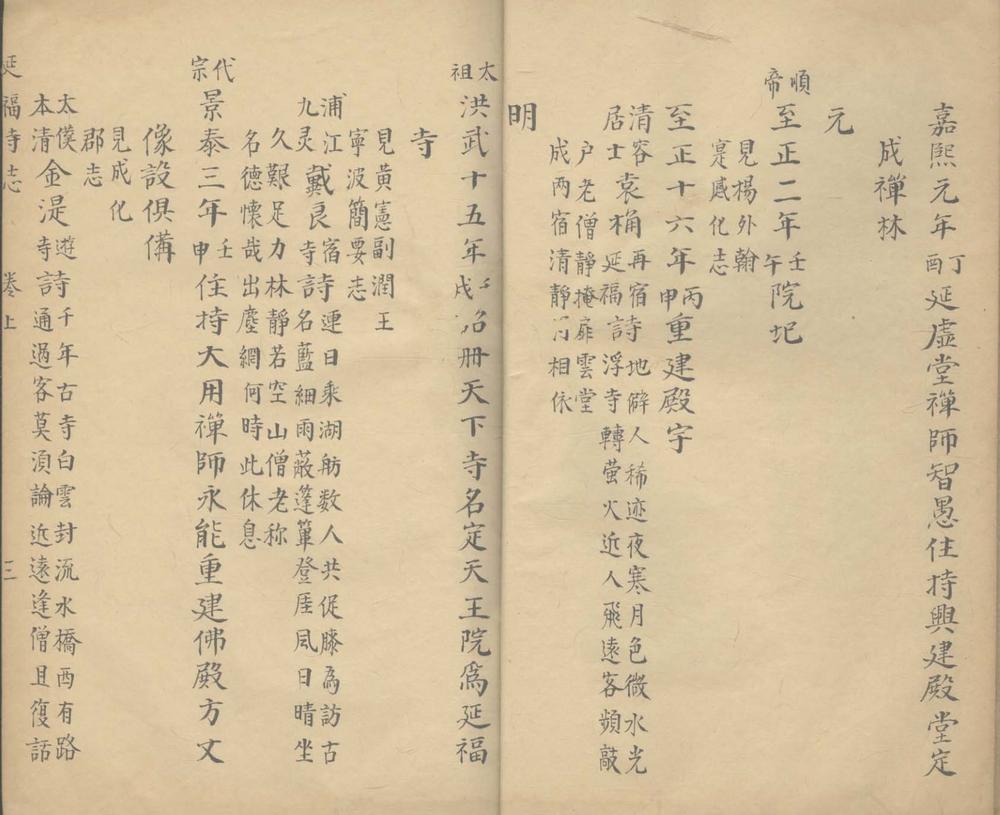 嘉熙元年丁酉延虛堂禪師智愚住持興建殿堂定
成禪林
元
順帝
至正二年壬午院圮
見楊外翰
寔感化志
至正十六年丙申重建殿宇
清容居士袁桷再宿延福詩地僻人稀迹夜寒月色微水光
浮寺轉萤火近人飛遠客頻敲
户老僧靜掩扉雲堂
成两宿清靜相依
明
太祖
洪武十五年壬戌詔冊天下寺名定天王院爲延福
寺
見黃憲副潤王
寧波簡要志
浦江九灵戴良宿寺詩連日乘湖舫数人共促膝為訪古
名藍細雨蔽蓬篳登厓風日晴坐
久艱足力林靜若空山僧老称
名德懷哉出塵網何時此休息
代宗
景泰三年壬申住持大用禪師永能重建佛殿方丈
像設俱備
見成化
郡志
太僕本清金湜遊寺詩千年古寺白雲封流水橋西有路
通過客莫湏論近遠逢僧且復話
延福寺志 卷上 三